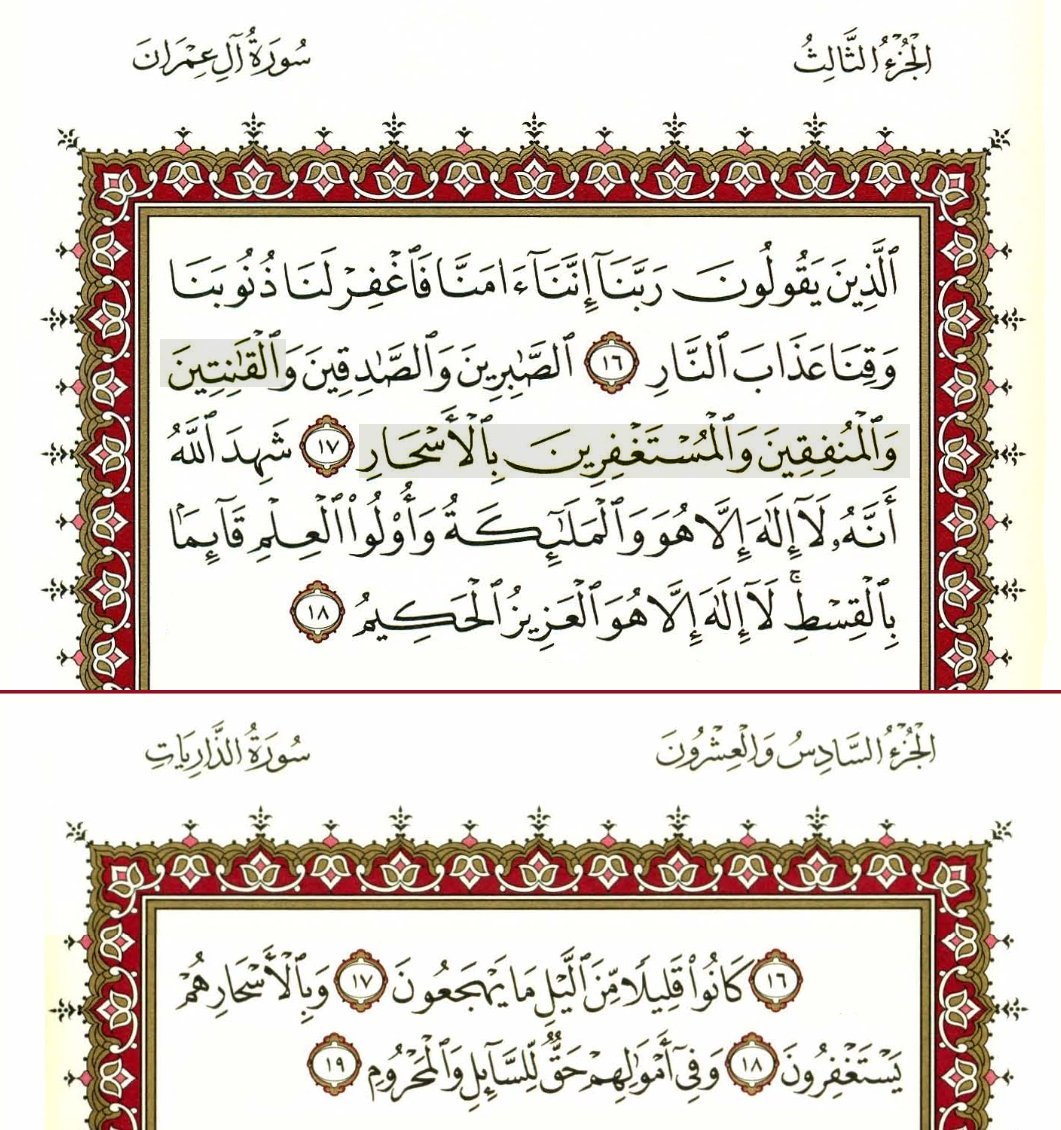 الجُزْءُ الثَّالِثُ
سُورَةُ آلِ عِمْرَانَ
ٱلَّذِينَ يَقُولُونَ رَبَّنَآ إِنَّنَآ ءَامَنَّا فَٱغْفِرْ لَنَا ذُنُوبَنَا
وَقِنَا عَذَابَ ٱلنَّارِ ١٦ ٱلصَّٰبِرِينَ وَٱلصَّٰدِقِينَ وَٱلْقَٰنِتِينَ
وَٱلْمُنفِقِينَ وَٱلْمُسْتَغْفِرِينَ بِٱلْأَسْحَارِ ١٧ شَهِدَ ٱللَّهُ
أَنَّهُۥ لَآ إِلَٰهَ إِلَّا هُوَ وَٱلْمَلَٰٓئِكَةُ وَأُو۟لُوا۟ ٱلْعِلْمِ قَآئِمًۢا
بِٱلْقِسْطِۚ لَآ إِلَٰهَ إِلَّا هُوَ ٱلْعَزِيزُ ٱلْحَكِيمُ ١٨
الجُزْءُ السَّادِسُ وَالْعِشْرُونَ
سُورَةُ الذَّارِيَاتِ
١٦ كَانُوا۟ قَلِيلًا مِّنَ ٱلَّيْلِ مَا يَهْجَعُونَ ١٧ وَبِٱلْأَسْحَارِ هُمْ
يَسْتَغْفِرُونَ ١٨ وَفِىٓ أَمْوَٰلِهِمْ حَقٌّ لِّلسَّآئِلِ وَٱلْمَحْرُومِ ١٩